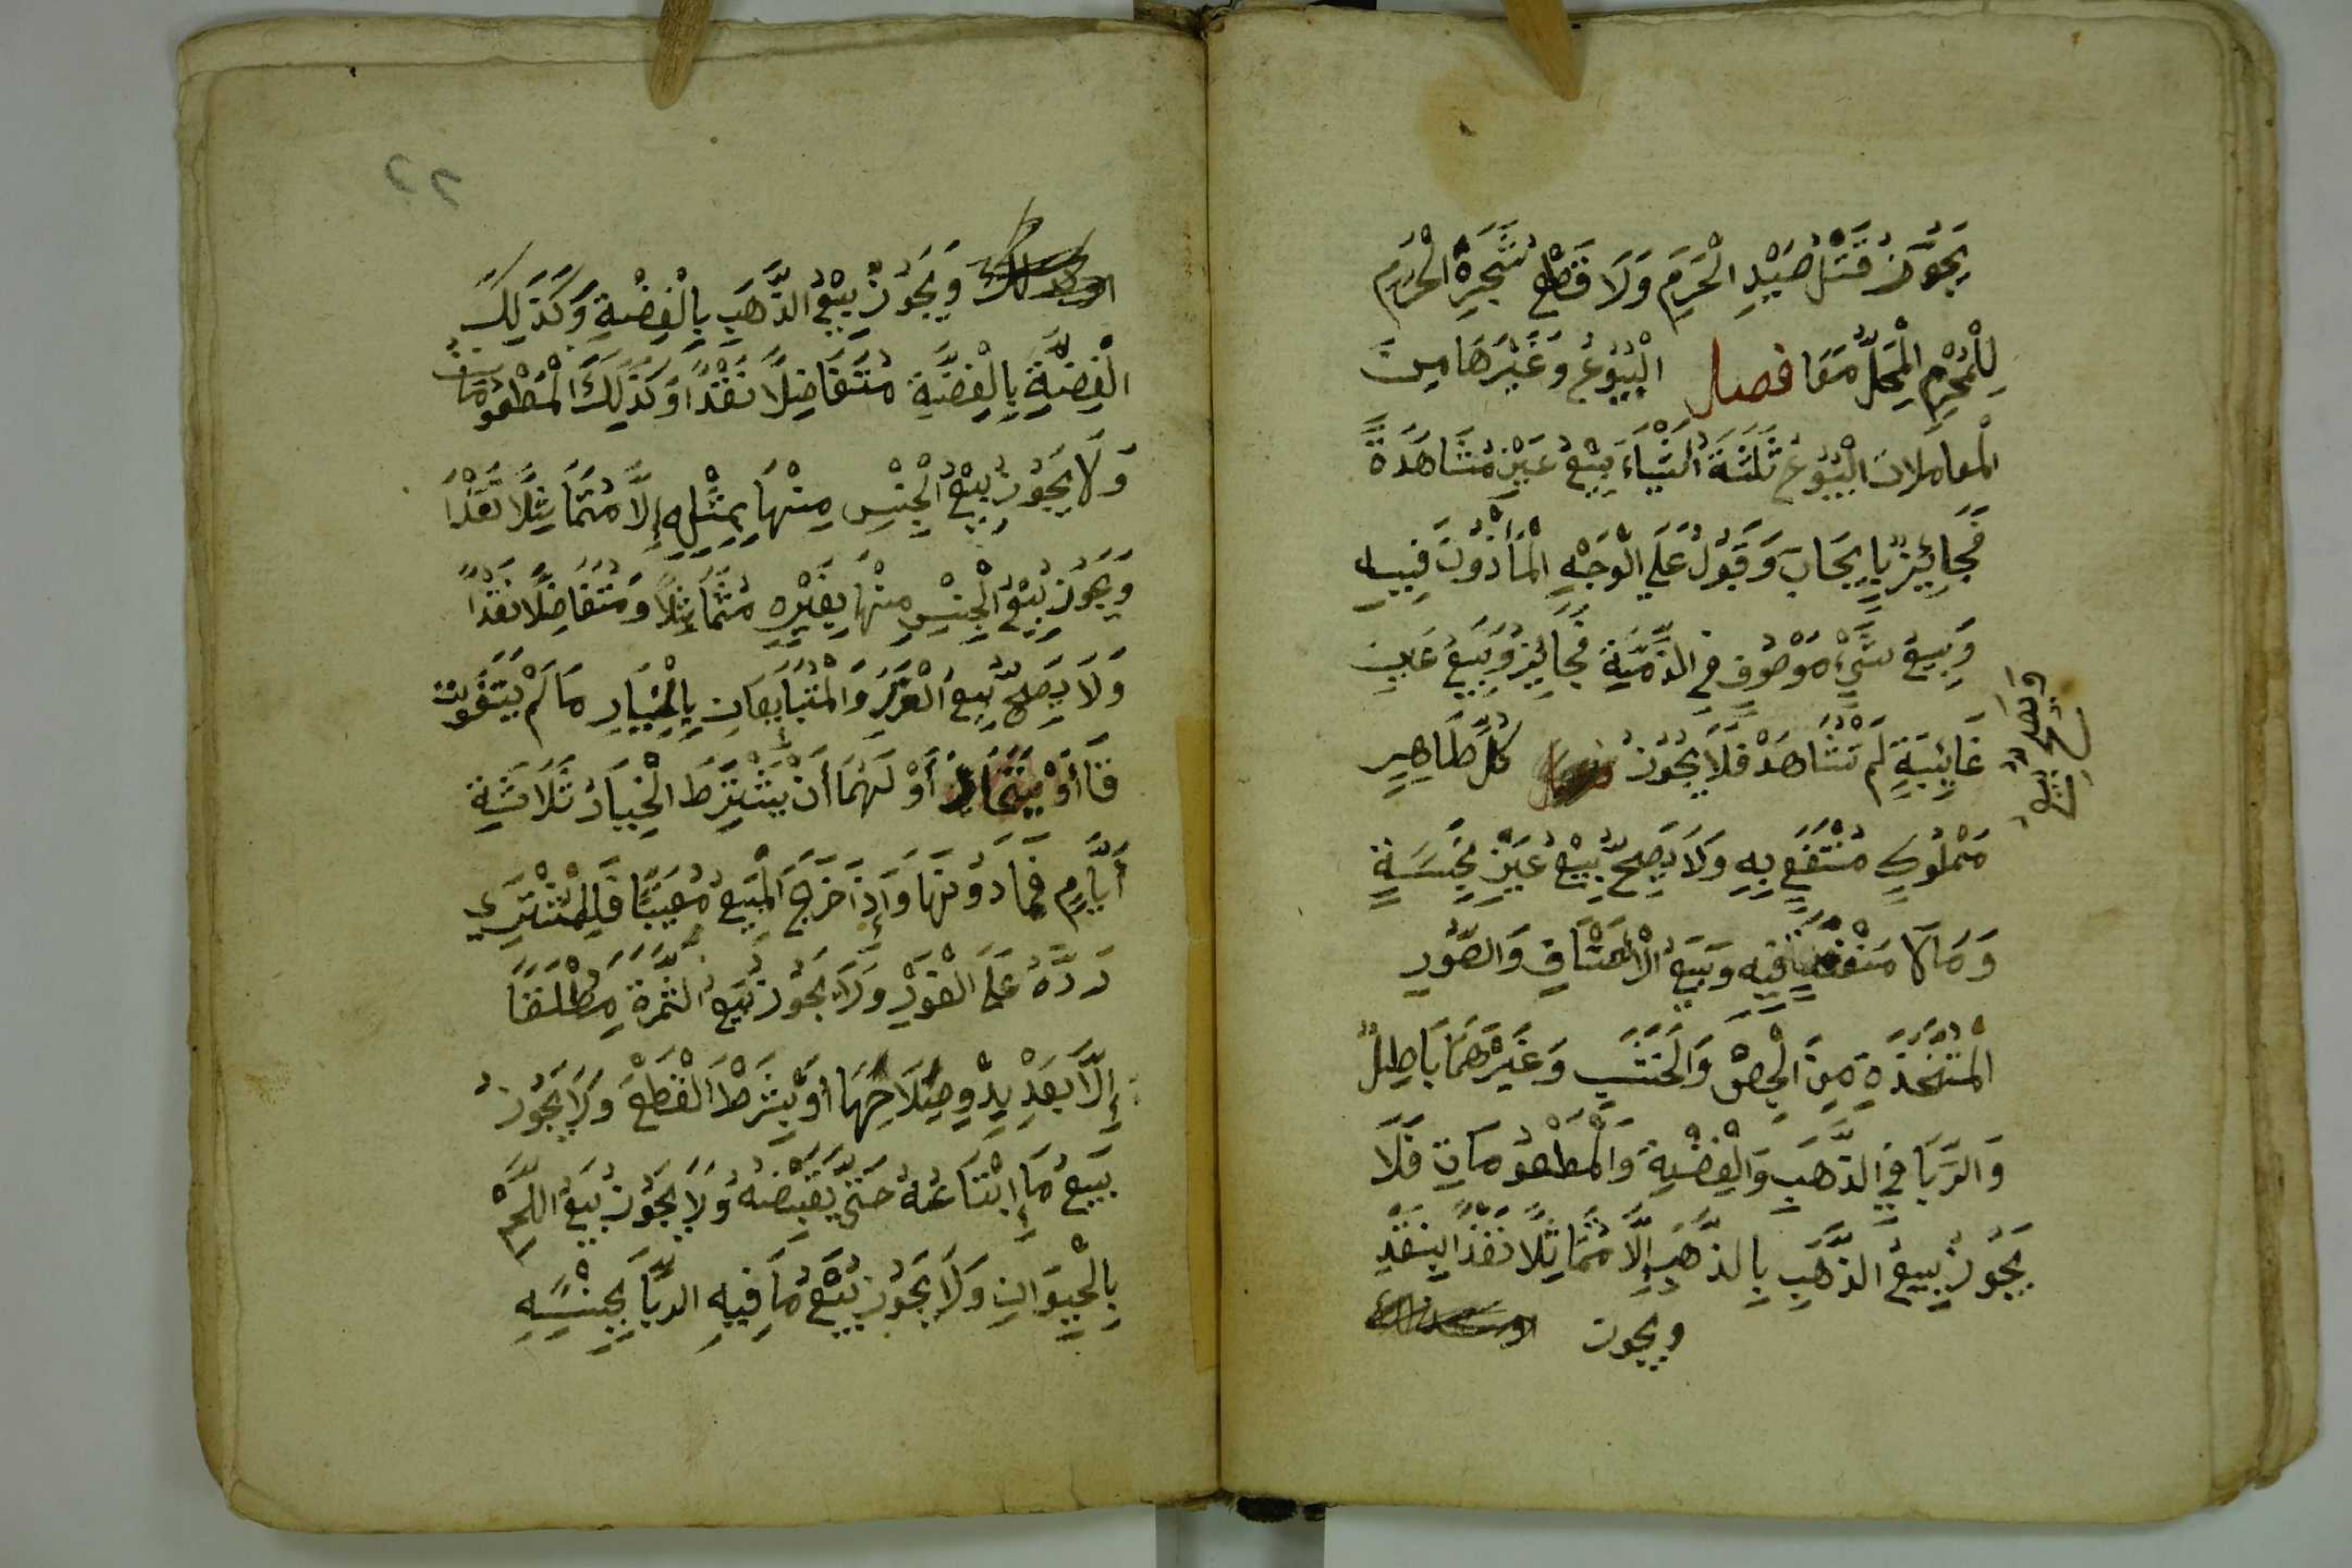 يَجُوزُ قَتْلُ صَيْدِ الْحَرَمِ وَلَا قَطْعُ شَجَرَةِ الْحَرَمِ
لِلْمُحْرِمِ الْمُحِلُّ مَعًا فصل الْبُيُوعُ وَغَيْرُهَا مِنَ
الْمعاملات الْبُيُوعُ ثَلَثَةُ اَشْيَاءَ بَيْعُ عَيْنٍ مُشَاهَدَةً
فَجَائِزٌ بِإِيجَابٍ وَقَبُولٍ عَلَي الْوَجْهِ الْمَأْذُونِ فِيهِ
وَبَيْعُ شَيْءٍ مَوْصُوفٍ فِي الذِّمَّةِ فَجَائِزٌ وَبَيْعُ عَيْنٍ
غَائِبَةٍ لَمْ تُشَاهَدْ فَلَا يَجُوزُ كُلِّ طَاهِرٍ
ويصح بيع
مَمْلُوكٍ مُنْتَفَعٍ بِهِ وَلَا يَصِحُّ بَيْعُ عَيْنٍ نَجِسَةٍ
وَمَا لَا مَنْفَعَةَ فِيهِ وَبَيْعُ الْأَعْتَاقِ وَالصُّوَرِ
الْمُتَّخَذَةِ مِنَ الْجِصِّ وَالْخَشَبِ وَغَيْرِهِمَا بَاطِلٌ
وَالرِّبَا فِي الذَّهَبِ وَالْفِضَّةِ وَالْمَطْعُومَاتِ فَلَا
يَجُوزُ بَيْعُ الذَّهَبِ بِالذَّهَبِ إِلَّا مُتَمَاثِلًا نَقْدًا بِنَقْدٍ
ويجوز
٢٢
وَيَجُوزُ بَيْعُ الذَّهَبِ بِالْفِضَّةِ وَكَذَلِكَ
الْفِضَّةِ بِالْفِضَّةِ مُتَفَاضِلًا نَقْدًا وَكَذَلِكَ الْمَطْعُومَاتُ
وَلَا يَجُوزُ بَيْعُ الْجِنْسِ مِنْهَا بِمِثْلِهِ إِلَّا مُتَمَاثِلًا نَقْدًا
وَيَجُوزُ بَيْعُ الْجِنْسِ مِنْهَا بِغَيْرِهِ مُتَمَاثِلًا وَمُتَفَاضِلًا نَقْدًا
وَلَا يَصِحُّ بَيْعُ الْغَرَرِ وَالْمُتَبَايِعَانِ بِالْخِيَارِ مَا لَمْ يَتَفَرَّقَا
أَوْ يَتَخَايَرَ أَوْ لَهُمَا أَنْ يَشْتَرِطَ الْخِيَارَ ثَلَاثَةِ
أَيَّامٍ فَمَا دُونَهَا وَإِذَا خَرَجَ الْمَبِيعُ مُعَيَّبًا فَلِلْمُشْتَرِي
رَدَّهُ عَلَى الْفَوْرِ وَلَا يَجُوزُ بَيْعُ الثَّمَرَةِ مُطْلَقًا
إِلَّا بَعْدَ بُدُوِّ صِلَاحِهَا أَوْ بِشَرْطِ الْقَطْعِ وَلَا يَجُوزُ
بَيْعُ مَا إِبْتَاعَهُ حَتَّى يَقْبِضَهُ وَلَا يَجُوزُ بَيْعُ اللَّحْمِ
بِالْحَيَوَانِ وَلَا يَجُوزُ بَيْعُ مَا فِيهِ الرِّبَا بِجِنْسِهِ